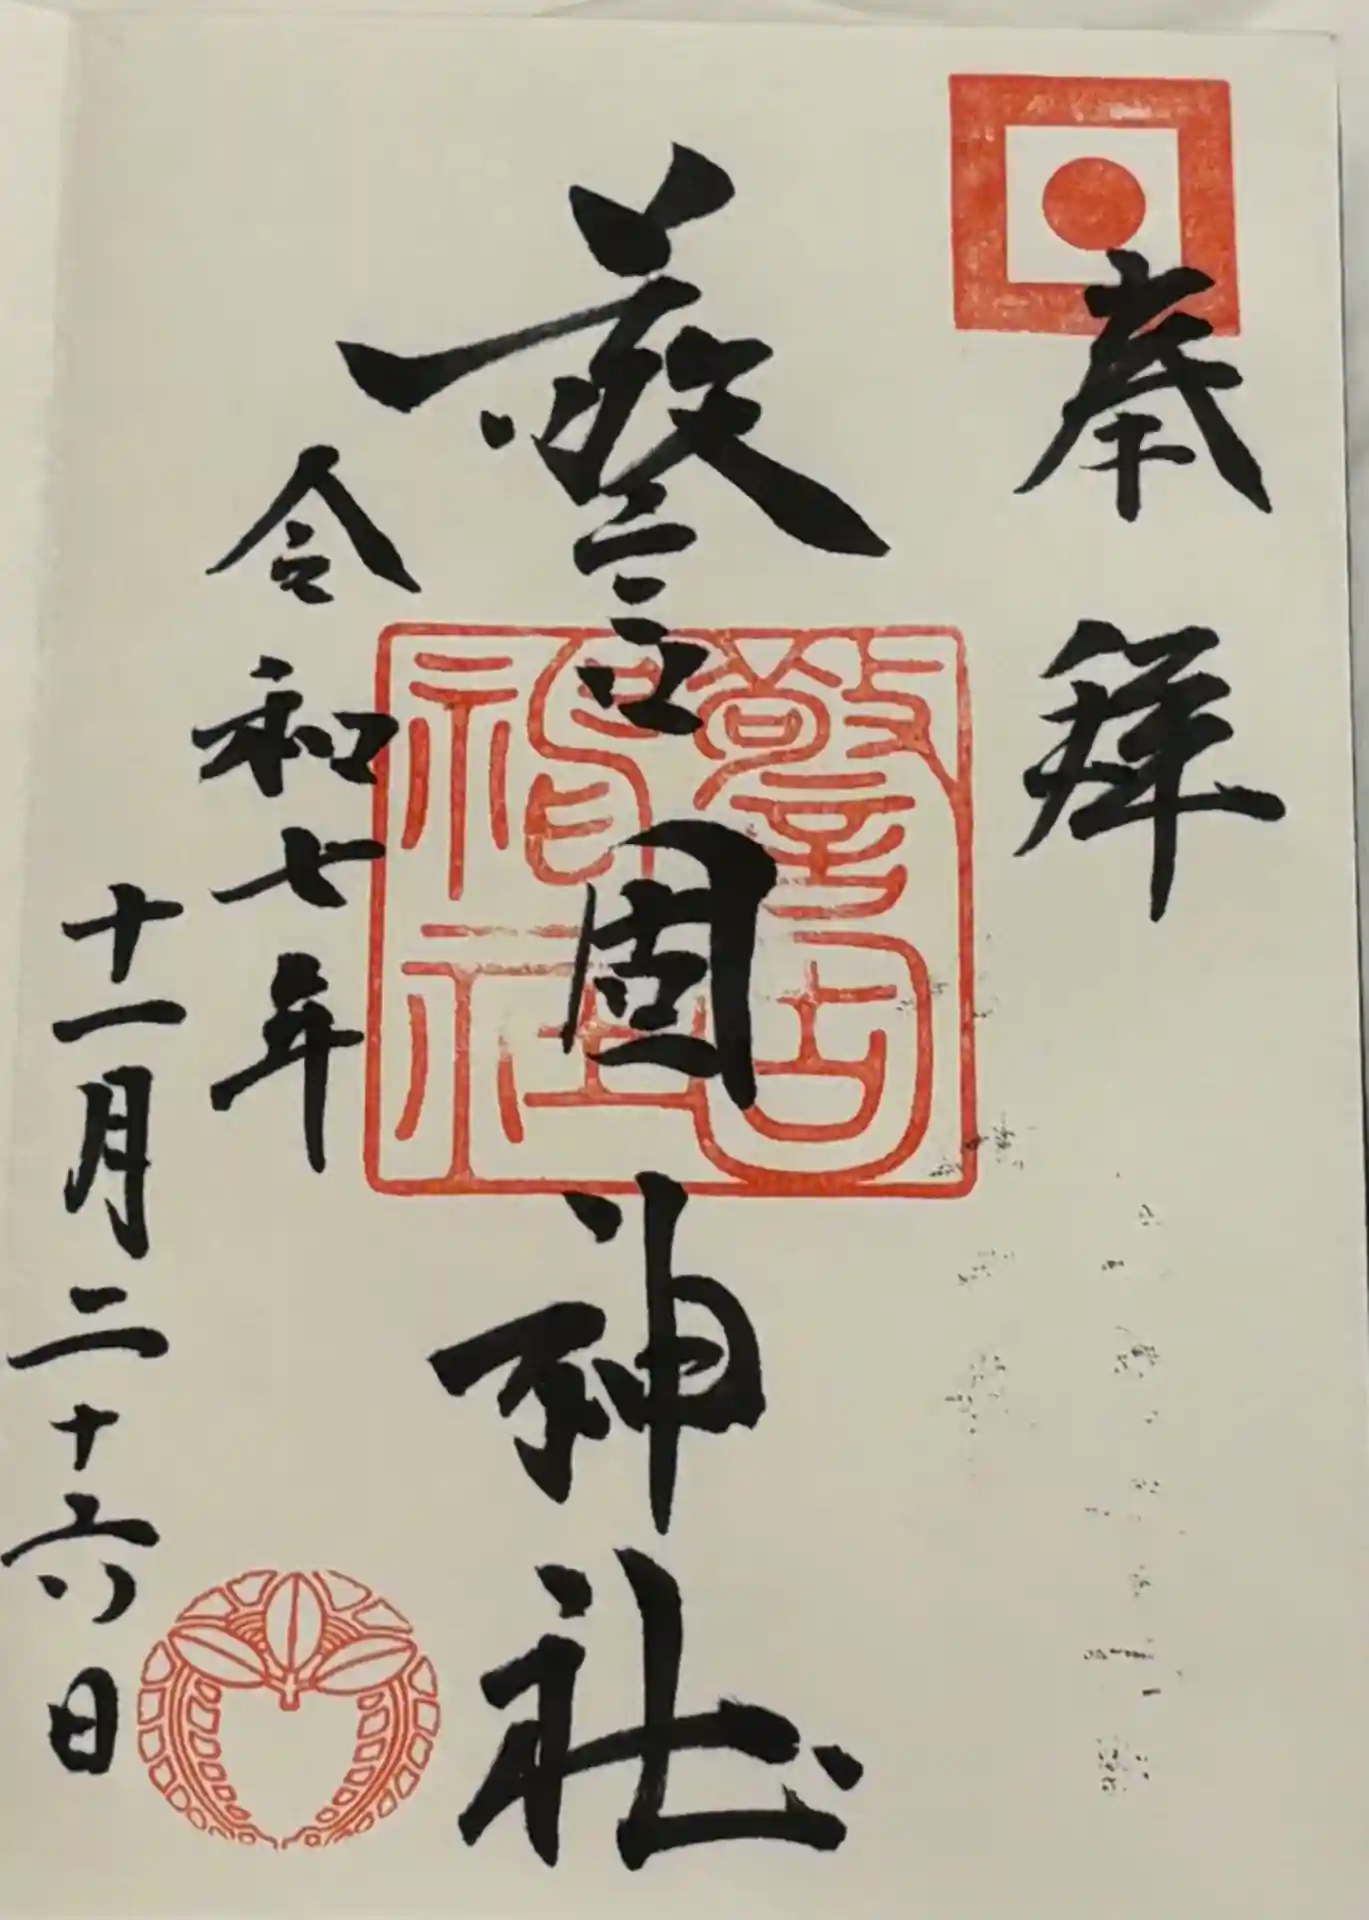 奉拜
警固神社
警固神社
令和七年
十一月二十六日